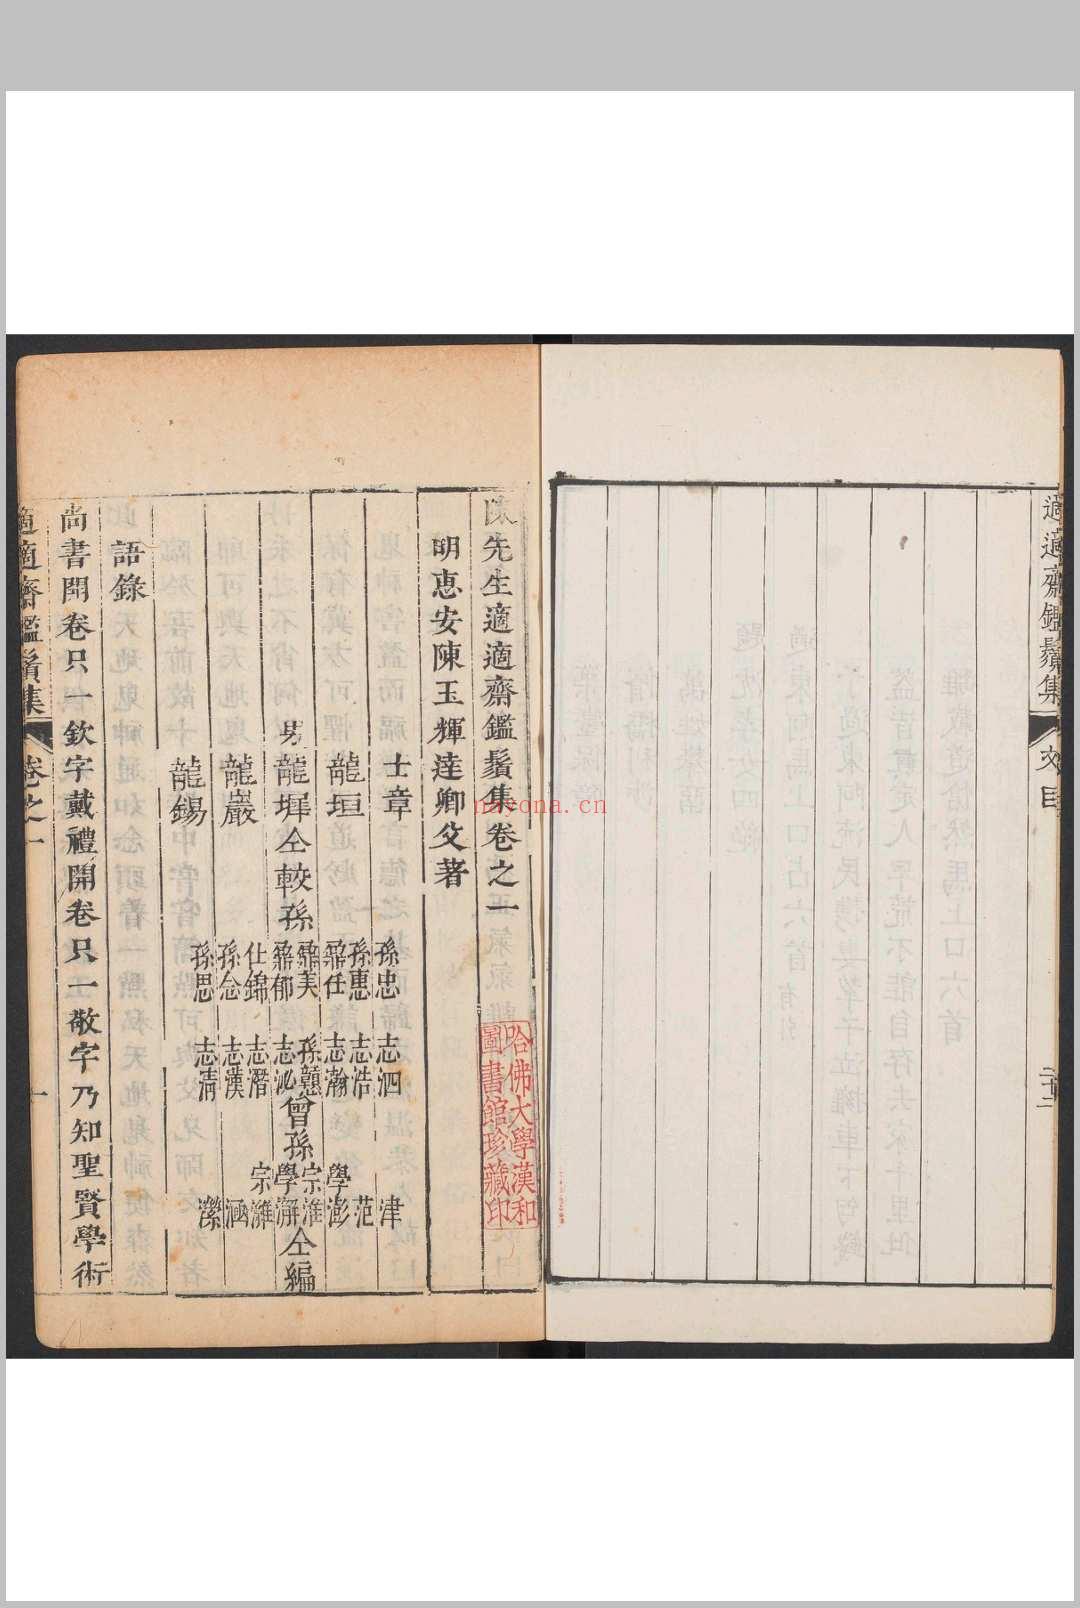 適適齋鑑鬚集
文目
二十二
陳先生適適齋鑑鬚集卷之一
明惠安陳玉輝達卿父著
士章
龍垣
男龍墀仝較孫
龍巖
龍錫
孫忠 志泗 津
孫惠 志浩 范
鼐任 志瀚 學澎
鼐美 孫戇 宗淮
鼐郁 志泌 學澥
曾孫
仝編
仕錦 志潛 宗濰
孫念 志漢 涵
孫思 志淸 濼
語錄
尚書開卷只一欽字戴禮開卷只一敬字乃知聖賢學術
適適齋鑑鬚集
卷之一
一
哈佛大學漢和
圖書館珍藏印
nayona.cn